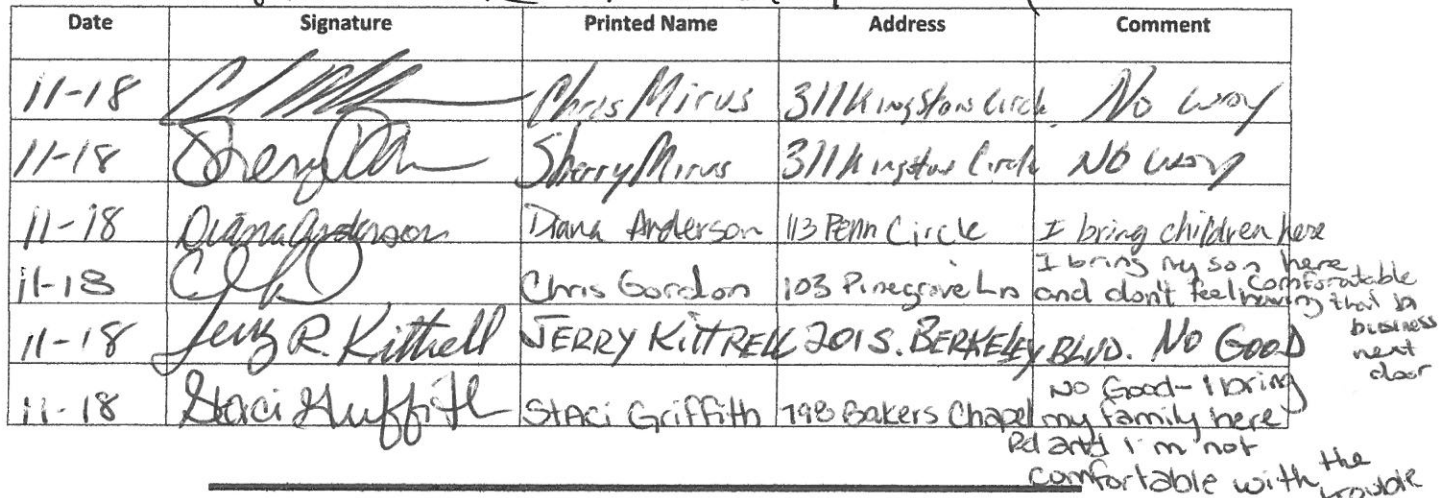 Date Signature Printed Name Address Comment
11-18 Chris Mirus 311 Kingston Circle No way
11-18 Sherry Mirus 311 Kingston Circle No way
11-18 Diana Anderson Diana Anderson 113 Penn Circle I bring children here
11-18 Chris Gordon 103 Pinegrove Ln I bring my son here
and don't feel comfortable
having that in
business
next
door
11-18 Jerry R. Kittrell JERRY KITTRELL 201 S. BERKELEY BLVD. No GOOD
11-18 Staci Griffith Staci Griffith 798 Bakers Chapel Rd No Good - I bring
my family here
and I'm not
comfortable with the
trouble